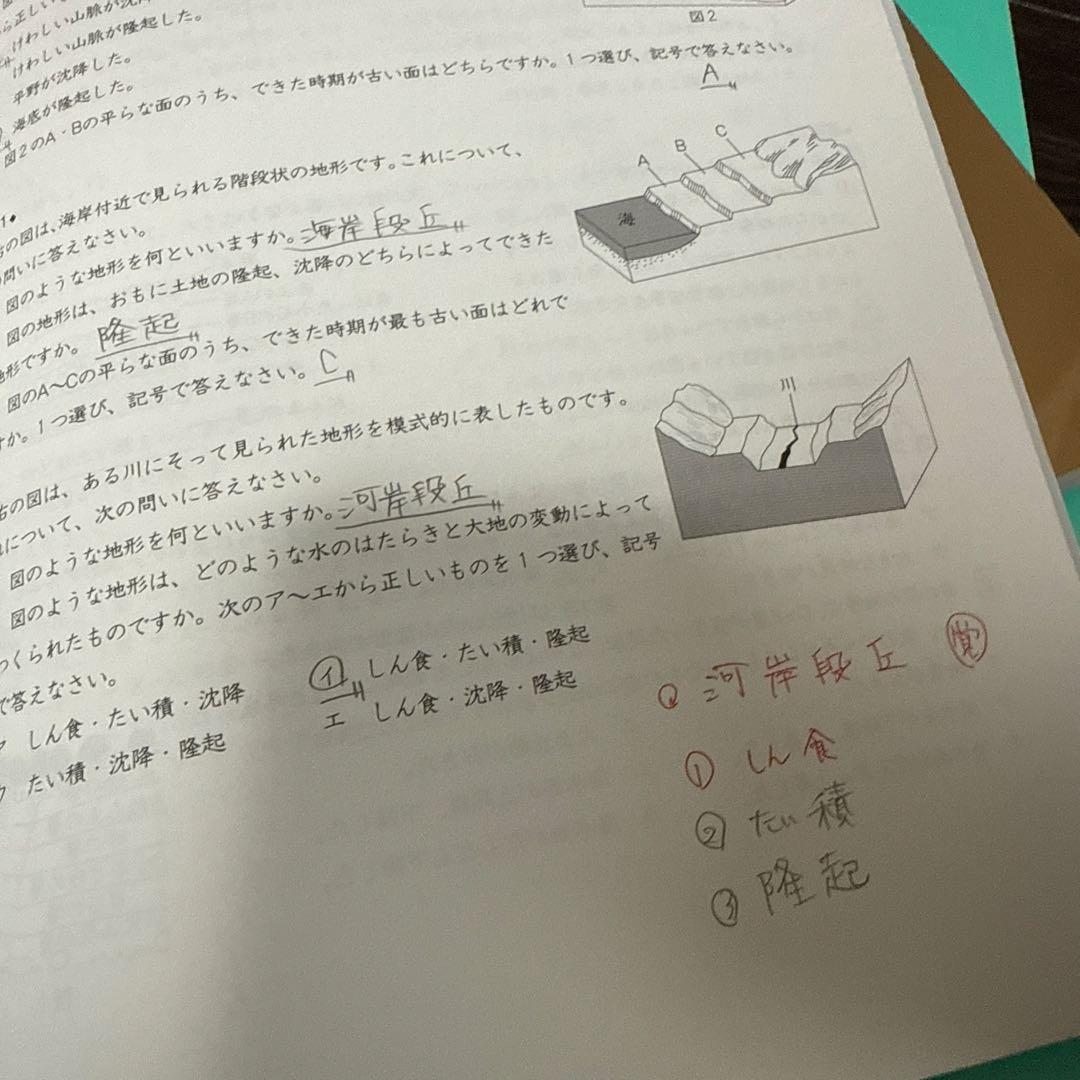 ら正しい
けわしい山脈が沈降
けわしい山脈が隆起した。
平野が沈降した。
海底が隆起した。
図2
図2のA・Bの平らな面のうち、できた時期が古い面はどちらですか。1つ選び、記号で答えなさい。
A
1◆
右の図は、海岸付近で見られる階段状の地形です。これについて、
の問いに答えなさい。
図のような地形を何といいますか。海岸段丘
図の地形は、おもに土地の隆起、沈降のどちらによってできた
地形ですか。隆起
図のA〜Cの平らな面のうち、できた時期が最も古い面はどれで
すか。1つ選び、記号で答えなさい。C
A
B
C
海
右の図は、ある川にそって見られた地形を模式的に表したものです。
れについて、次の問いに答えなさい。
図のような地形を何といいますか。河岸段丘
図のような地形は、どのような水のはたらきと大地の変動によって
つくられたものですか。次のア〜エから正しいものを1つ選び、記号
で答えなさい。
ア しん食・たい積・沈降
イ しん食・たい積・隆起
ウ たい積・沈降・隆起
エ しん食・沈降・隆起
川
Q 河岸段丘 覚
① しん食
② たい積
③ 隆起